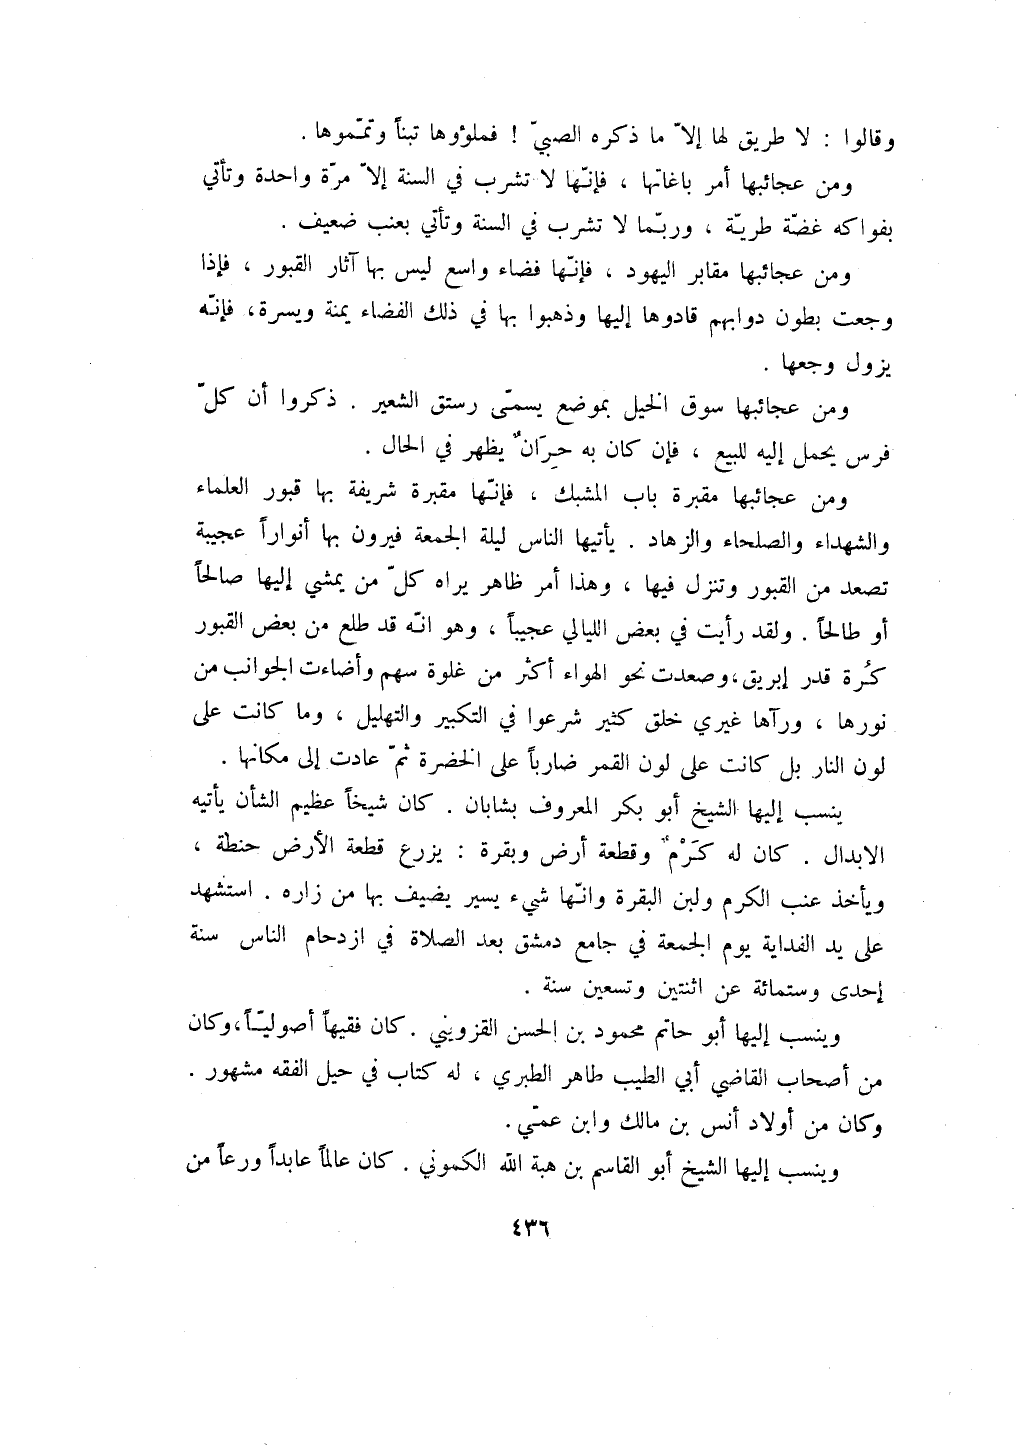 وقالوا : لا طريق لها إلاّ ما ذكره الصبيّ ! فملؤوها تبناً وتمّموها .
ومن عجائبها أمر باغاتها ، فإنّها لا تشرب في السنة إلاّ مرّة واحدة وتأتي
بفواكه غضّة طريّة ، وربّما لا تشرب في السنة وتأتي بعنب ضعيف .
ومن عجائبها مقابر اليهود ، فإنّها فضاء واسع ليس بها آثار القبور ، فإذا
وجعت بطون دوابهم قادوها إليها وذهبوا بها في ذلك الفضاء يمنة ويسرة، فإنّه
يزول وجعها .
ومن عجائبها سوق الخيل بموضع يسمّى رستق الشعير . ذكروا أن كلّ
فرس يحمل إليه للبيع ، فإن كان به حِرَانٌ يظهر في الحال .
ومن عجائبها مقبرة باب المشبك ، فإنّها مقبرة شريفة بها قبور العلماء
والشهداء والصلحاء والزهاد . يأتيها الناس ليلة الجمعة فيرون بها أنواراً عجيبة
تصعد من القبور وتنزل فيها ، وهذا أمر ظاهر يراه كلّ من يمشي إليها صالحاً
أو طالحاً . ولقد رأيت في بعض الليالي عجيباً ، وهو انّه قد طلع من بعض القبور
كُرة قدر إبريق،وصعدت نحو الهواء أكثر من غلوة سهم وأضاءت الجوانب من
نورها ، ورآها غيري خلق كثير شرعوا في التكبير والتهليل ، وما كانت على
لون النار بل كانت على لون القمر ضارباً على الخضرة ثمّ عادت إلى مكانها .
ينسب إليها الشيخ أبو بكر المعروف بشابان . كان شيخاً عظيم الشأن يأتيه
الابدال . كان له كَرْمٌ وقطعة أرض وبقرة : يزرع قطعة الأرض حنطة ،
ويأخذ عنب الكرم ولبن البقرة وانّها شيء يسير يضيف بها من زاره . استشهد
على يد الفداية يوم الجمعة في جامع دمشق بعد الصلاة في ازدحام الناس سنة
إحدى وستمائة عن اثنتين وتسعين سنة .
وينسب إليها أبو حاتم محمود بن الحسن القزويني . كان فقيهاً أصوليّاً،وكان
من أصحاب القاضي أبي الطيب طاهر الطبري ، له كتاب في حيل الفقه مشهور .
وكان من أولاد أنس بن مالك وابن عمّي.
وينسب إليها الشيخ أبو القاسم بن هبة الله الكموني . كان عالماً عابداً ورعاً من
٤٣٦